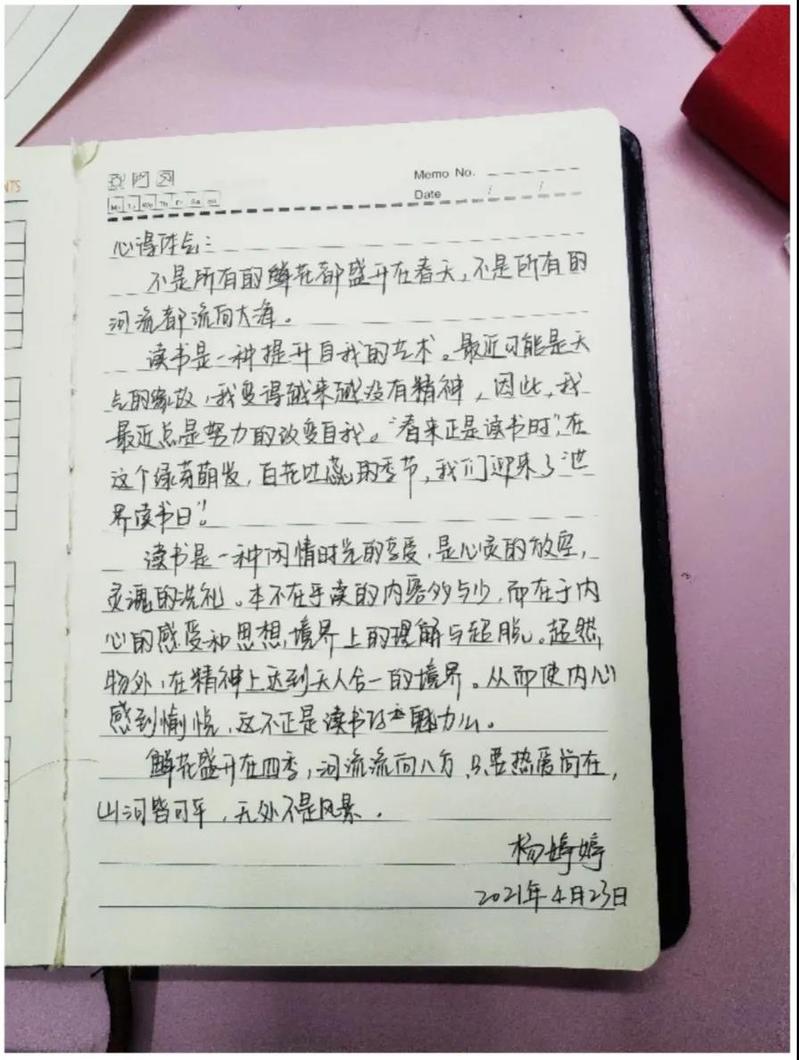 NTS
Memo No.
Date / /
心得体会:
不是所有的鲜花都盛开在春天,不是所有的
河流都流向大海。
读书是一种提升自我的艺术。最近可能是天
气的缘故,我变得越来越没有精神,因此,我
最近总是努力的改变自我。“春来正是读书时”,在
这个绿芽萌发,百花吐蕊的季节,我们迎来了“世
界读书日”!
读书是一种闲情时光的享受,是心灵的放空,
灵魂的洗礼。本不在乎读的内容多与少,而在于内
心的感受和思想,境界上的理解与超脱。超然
物外,在精神上达到天人合一的境界。从而使内心
感到愉悦,这不正是读书的魅力么。
鲜花盛开在四季,河流流向八方,只要热爱尚在,
山河皆可平,无处不是风景.
杨婷婷
2021年4月23日